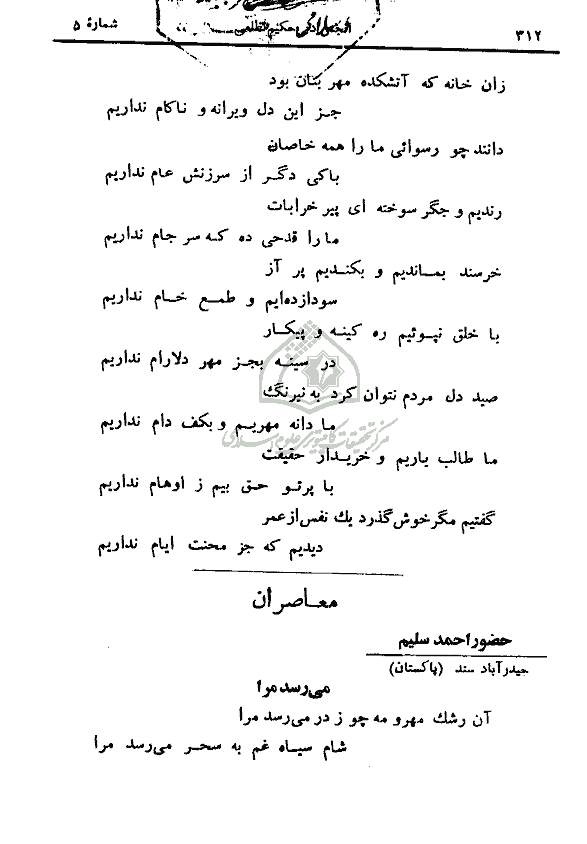 ۳۱۲
شمارهٔ ۵
زان خانه که آتشکده مهر بتان بود
جـز این دل ویرانه و ناکام نداریم
دانند چو رسوائی ما را همه خاصان
باکی دگـر از سرزنش عام نداریم
رندیم و جگر سوخته ای پیر خرابات
ما را قدحی ده که سر جام نداریم
خرسند بمـاندیم و بکندیم پر آز
سودازده‌ایم و طمـع خـام نداریم
با خلق نپوئیم ره کینه و پیکـار
در سینـه بجـز مهر دلارام نداریم
صید دل مردم نتوان کرد به نیرنگ
مـا دانه مهریـم و بکف دام نداریم
مرکز تحقیقات کامپیوتری علوم اسلامی
ما طالب یاریم و خریـدار حقیقت
با پرتـو حـق بیم ز اوهام نداریم
گفتیم مگر خوش گذرد یك نفس از عمر
دیدیم که جز محنت ایام نداریم
معـاصران
حضور احمد سلیم
حیدرآباد سند (پاکستان)
می‌رسد مرا
آن رشك مهر و مه چو ز در می‌رسد مرا
شام سیـاه غم به سحـر می‌رسد مرا